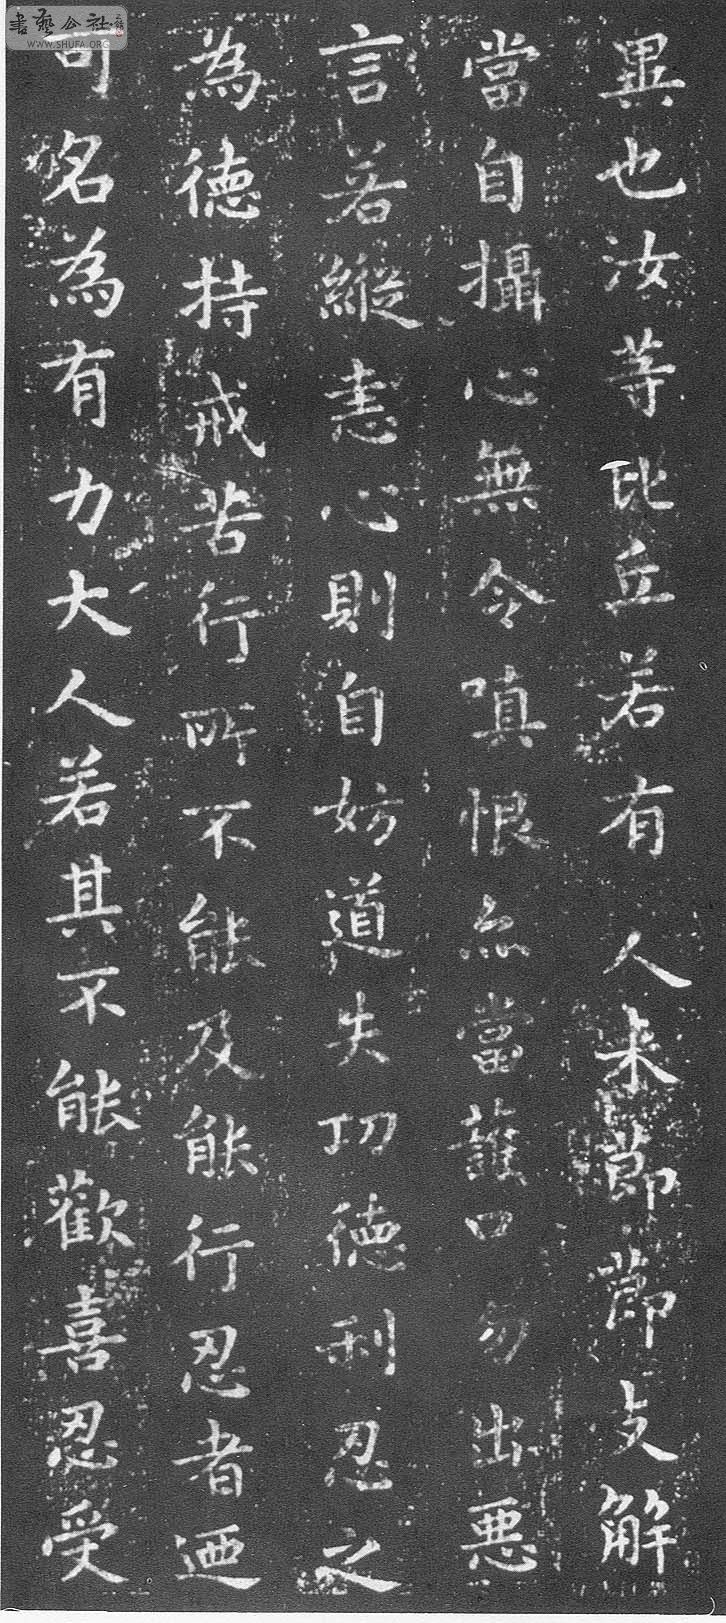 異也汝等比丘若有人来節節支解
當自攝心無令嗔恨亦當護口勿出惡
言若縱恚心則自妨道失功德利忍之
為德持戒苦行所不能及能行忍者迺
可名為有力大人若其不能歡喜忍受
書藝公社
WWW.SHUFA.ORG